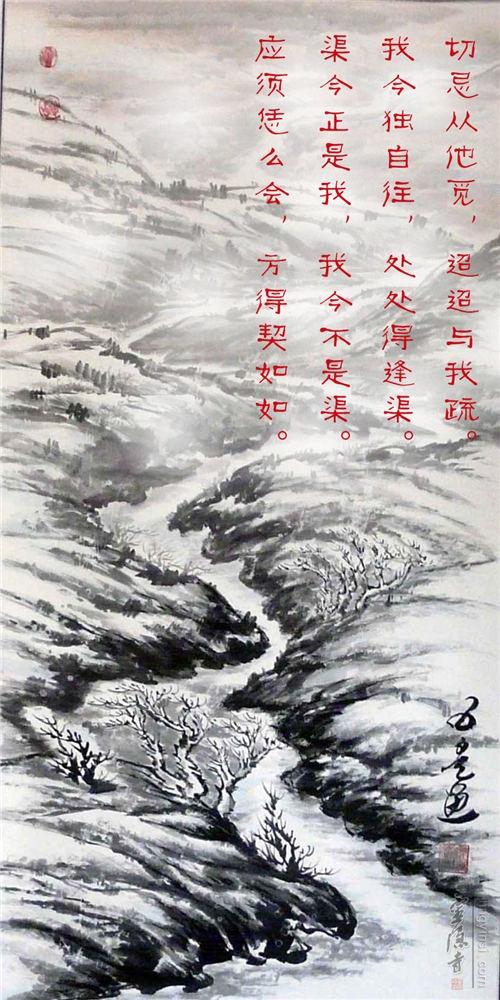 切忌从他觅，迢迢与我疏。
我今独自往，处处得逢渠。
渠今正是我，我今不是渠。
应须恁么会，方得契如如。